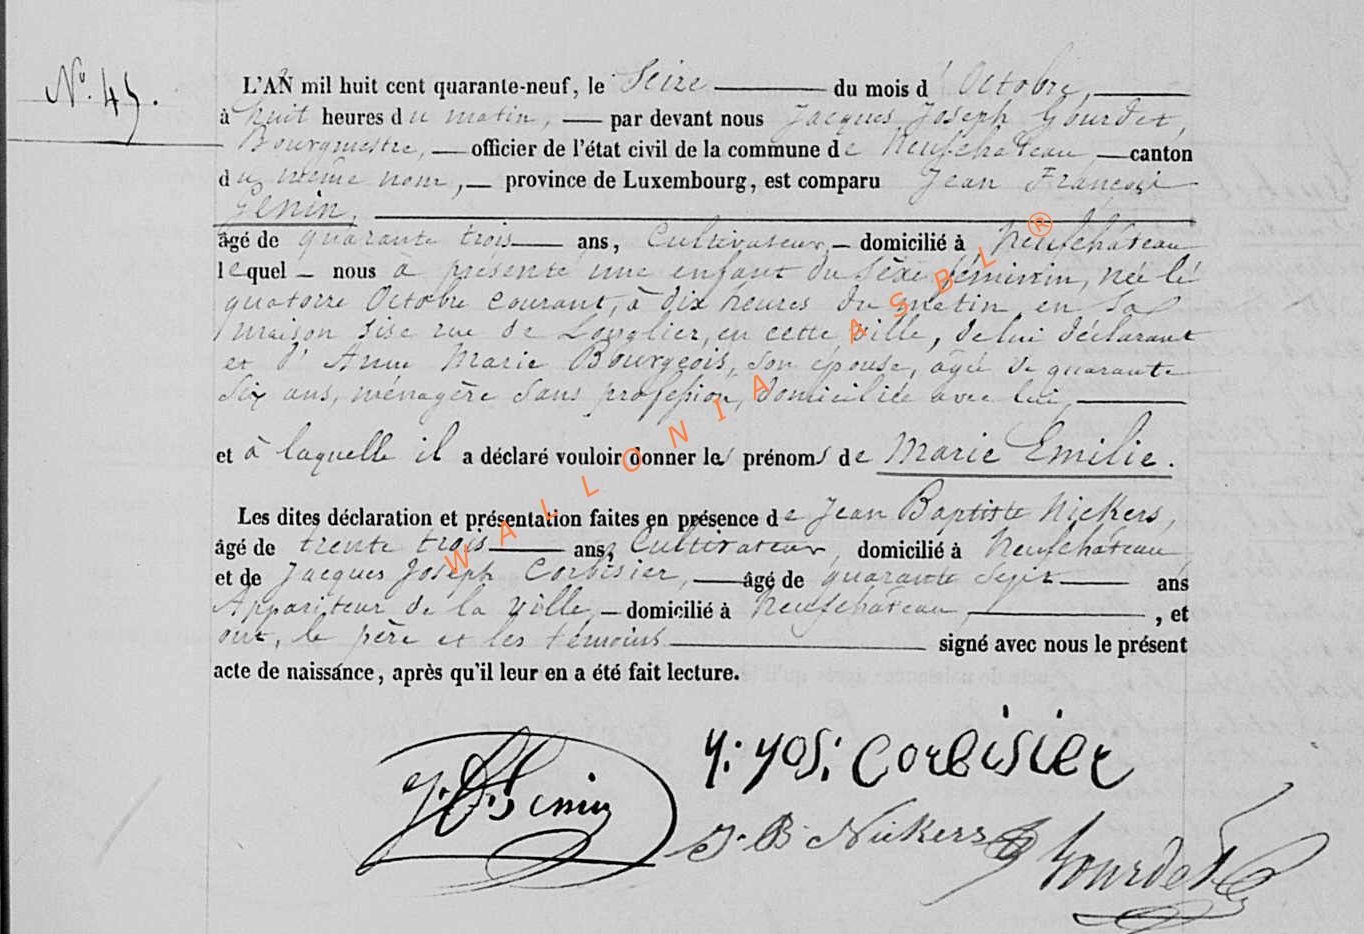 N° 45.
L'AN mil huit cent quarante-neuf, le Seize du mois d'Octobre,
à huit heures du matin, — par devant nous Jacques Joseph Gourdet,
Bourgmestre, — officier de l'état civil de la commune de Neufchâteau, — canton
du même nom, — province de Luxembourg, est comparu Jean François
Genin,
âgé de quarante trois ans, Cultivateur, — domicilié à Neufchâteau
lequel — nous a présenté une enfant du Sexe féminin, née le
quatorze Octobre courant, à dix heures du matin en sa
maison sise rue de Longlier, en cette ville, de lui déclarant
et d'Anne Marie Bourgeois, son épouse, agée de quarante
six ans, ménagère sans profession, domiciliée avec lui,
et à laquelle il a déclaré vouloir donner les prénoms de Marie Emilie.
Les dites déclaration et présentation faites en présence de Jean Baptiste Nickers,
âgé de trente trois ans, Cultivateur, domicilié à Neufchâteau
et de Jacques Joseph Corbisier, — âgé de quarante Sept ans
Appariteur de la ville, — domicilié à Neufchâteau, , et
ont, le père et les témoins signé avec nous le présent
acte de naissance, après qu'il leur en a été fait lecture.
J. F. Genin
J: Jos: Corbisier
J. B Nickers
Gourdet
WALLONIA ASBL ®